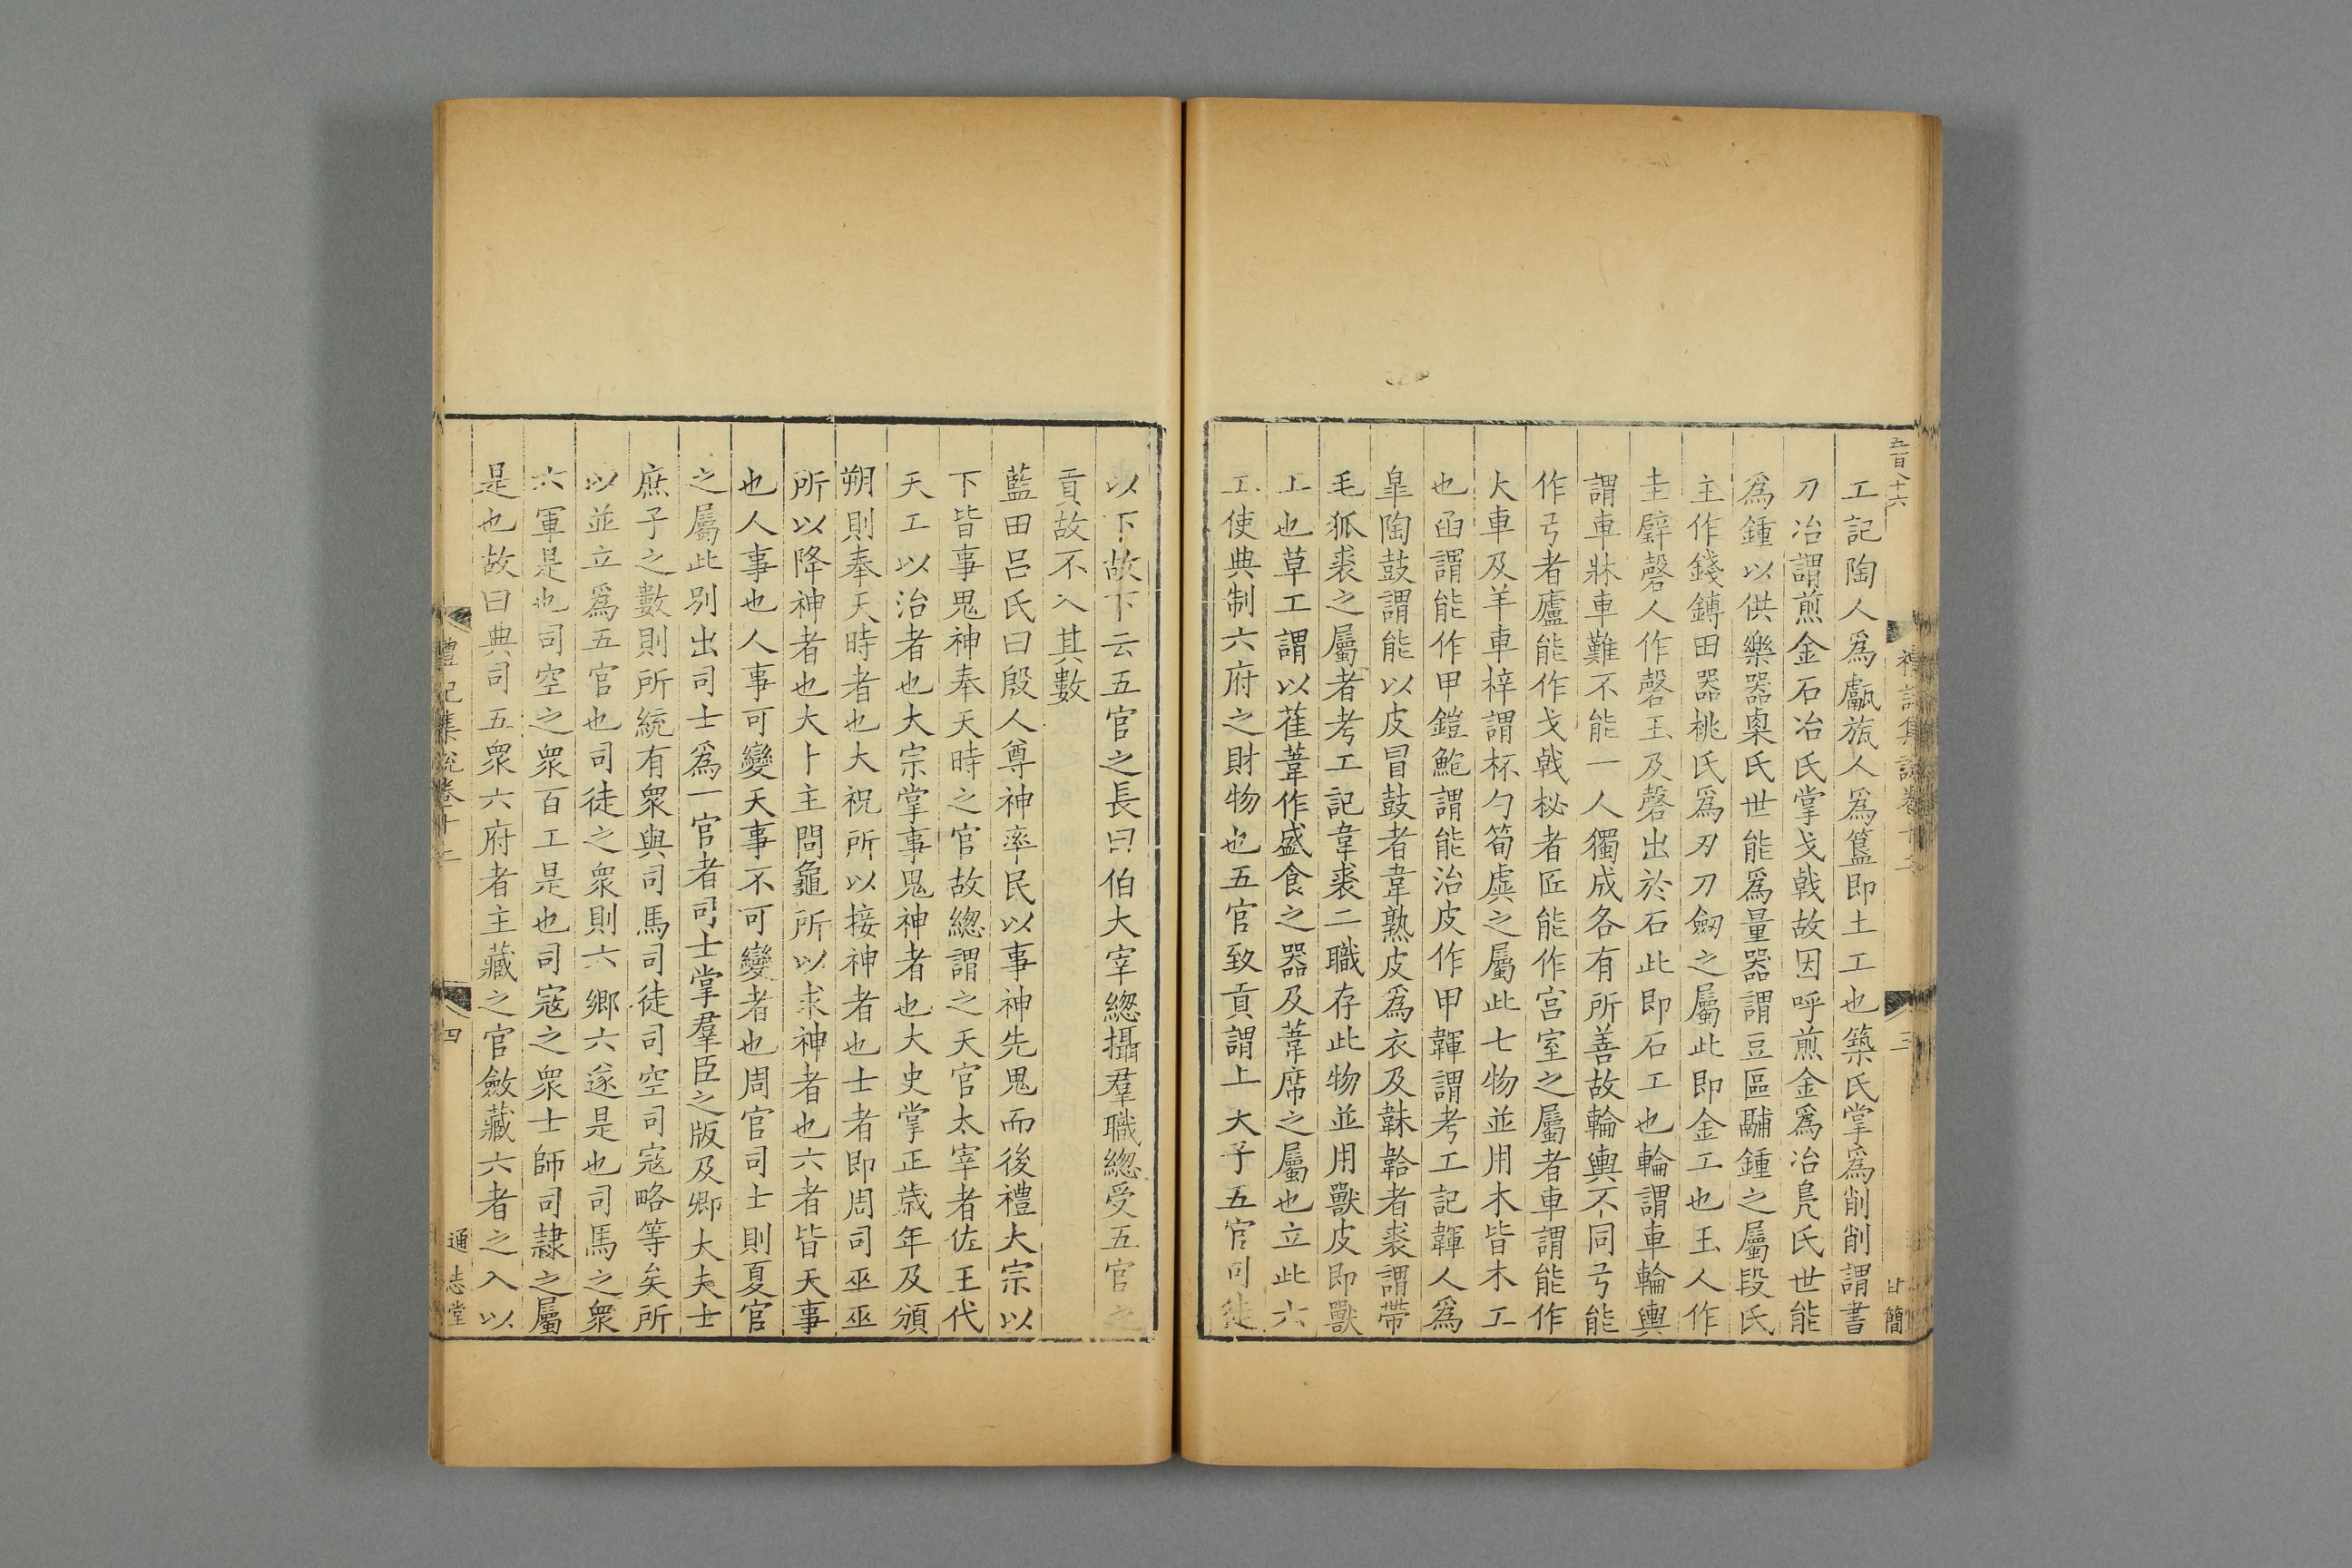 五百八十六
禮記集說卷十二
三
甘簡
工記陶人爲甗瓬人爲簋即土工也築氏掌爲削削謂書
刀冶謂煎金石冶氏掌戈戟故因呼煎金爲冶鳧氏世能
爲鍾以供樂器㮚氏世能爲量器謂豆區鬴鍾之屬段氏
主作錢鎛田器桃氏爲刃刀劒之屬此即金工也玉人作
圭璧磬人作磬玉及磬出於石此即石工也輪謂車輪輿
謂車牀車難不能一人獨成各有所善故輪輿不同弓能
作弓者廬能作戈戟柲者匠能作宮室之屬者車謂能作
大車及羊車梓謂杯勺筍虡之屬此七物並用木皆木工
也函謂能作甲鎧鮑謂能治皮作甲韗謂考工記韗人爲
臯陶鼓謂能以皮冒鼓者韋熟皮爲衣及韎韐者裘謂帶
毛狐裘之屬者考工記韋裘二職存此物並用獸皮即獸
工也草工謂以萑葦作盛食之器及葦席之屬也立此六
工使典制六府之財物也五官致貢謂上大子五官司徒
以下故下云五官之長曰伯大宰緫攝羣職緫受五官之
貢故不入其數
藍田呂氏曰殷人尊神率民以事神先鬼而後禮大宗以
下皆事鬼神奉天時之官故緫謂之天官太宰者佐王代
天工以治者也大宗掌事鬼神者也大史掌正歲年及頒
朔則奉天時者也大祝所以接神者也士者即周司巫巫
所以降神者也大卜主問龜所以求神者也六者皆天事
也人事也人事可變天事不可變者也周官司士則夏官
之屬此別出司士爲一官者司士掌羣臣之版及卿大夫士
庶子之數則所統有衆與司馬司徒司空司寇略等矣所
以並立爲五官也司徒之衆則六鄉六遂是也司馬之衆
六軍是也司空之衆百工是也司寇之衆士師司隷之屬
是也故曰典司五衆六府者主藏之官斂藏六者之入以
禮記集說卷十二
四
通志堂